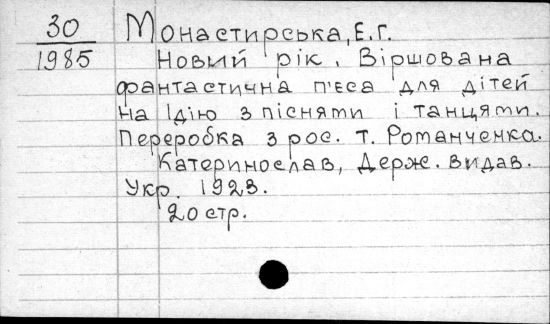 30 Монастирська, Е. Г.
1985 Новый рік. Віршована
фантастична п'еса для дітей
на 1 дію з піснями і танцями.
Переробка з рос. т. Романченка.
Катеринослав, Держ. видав.
Укр. 1923.
20 стр.